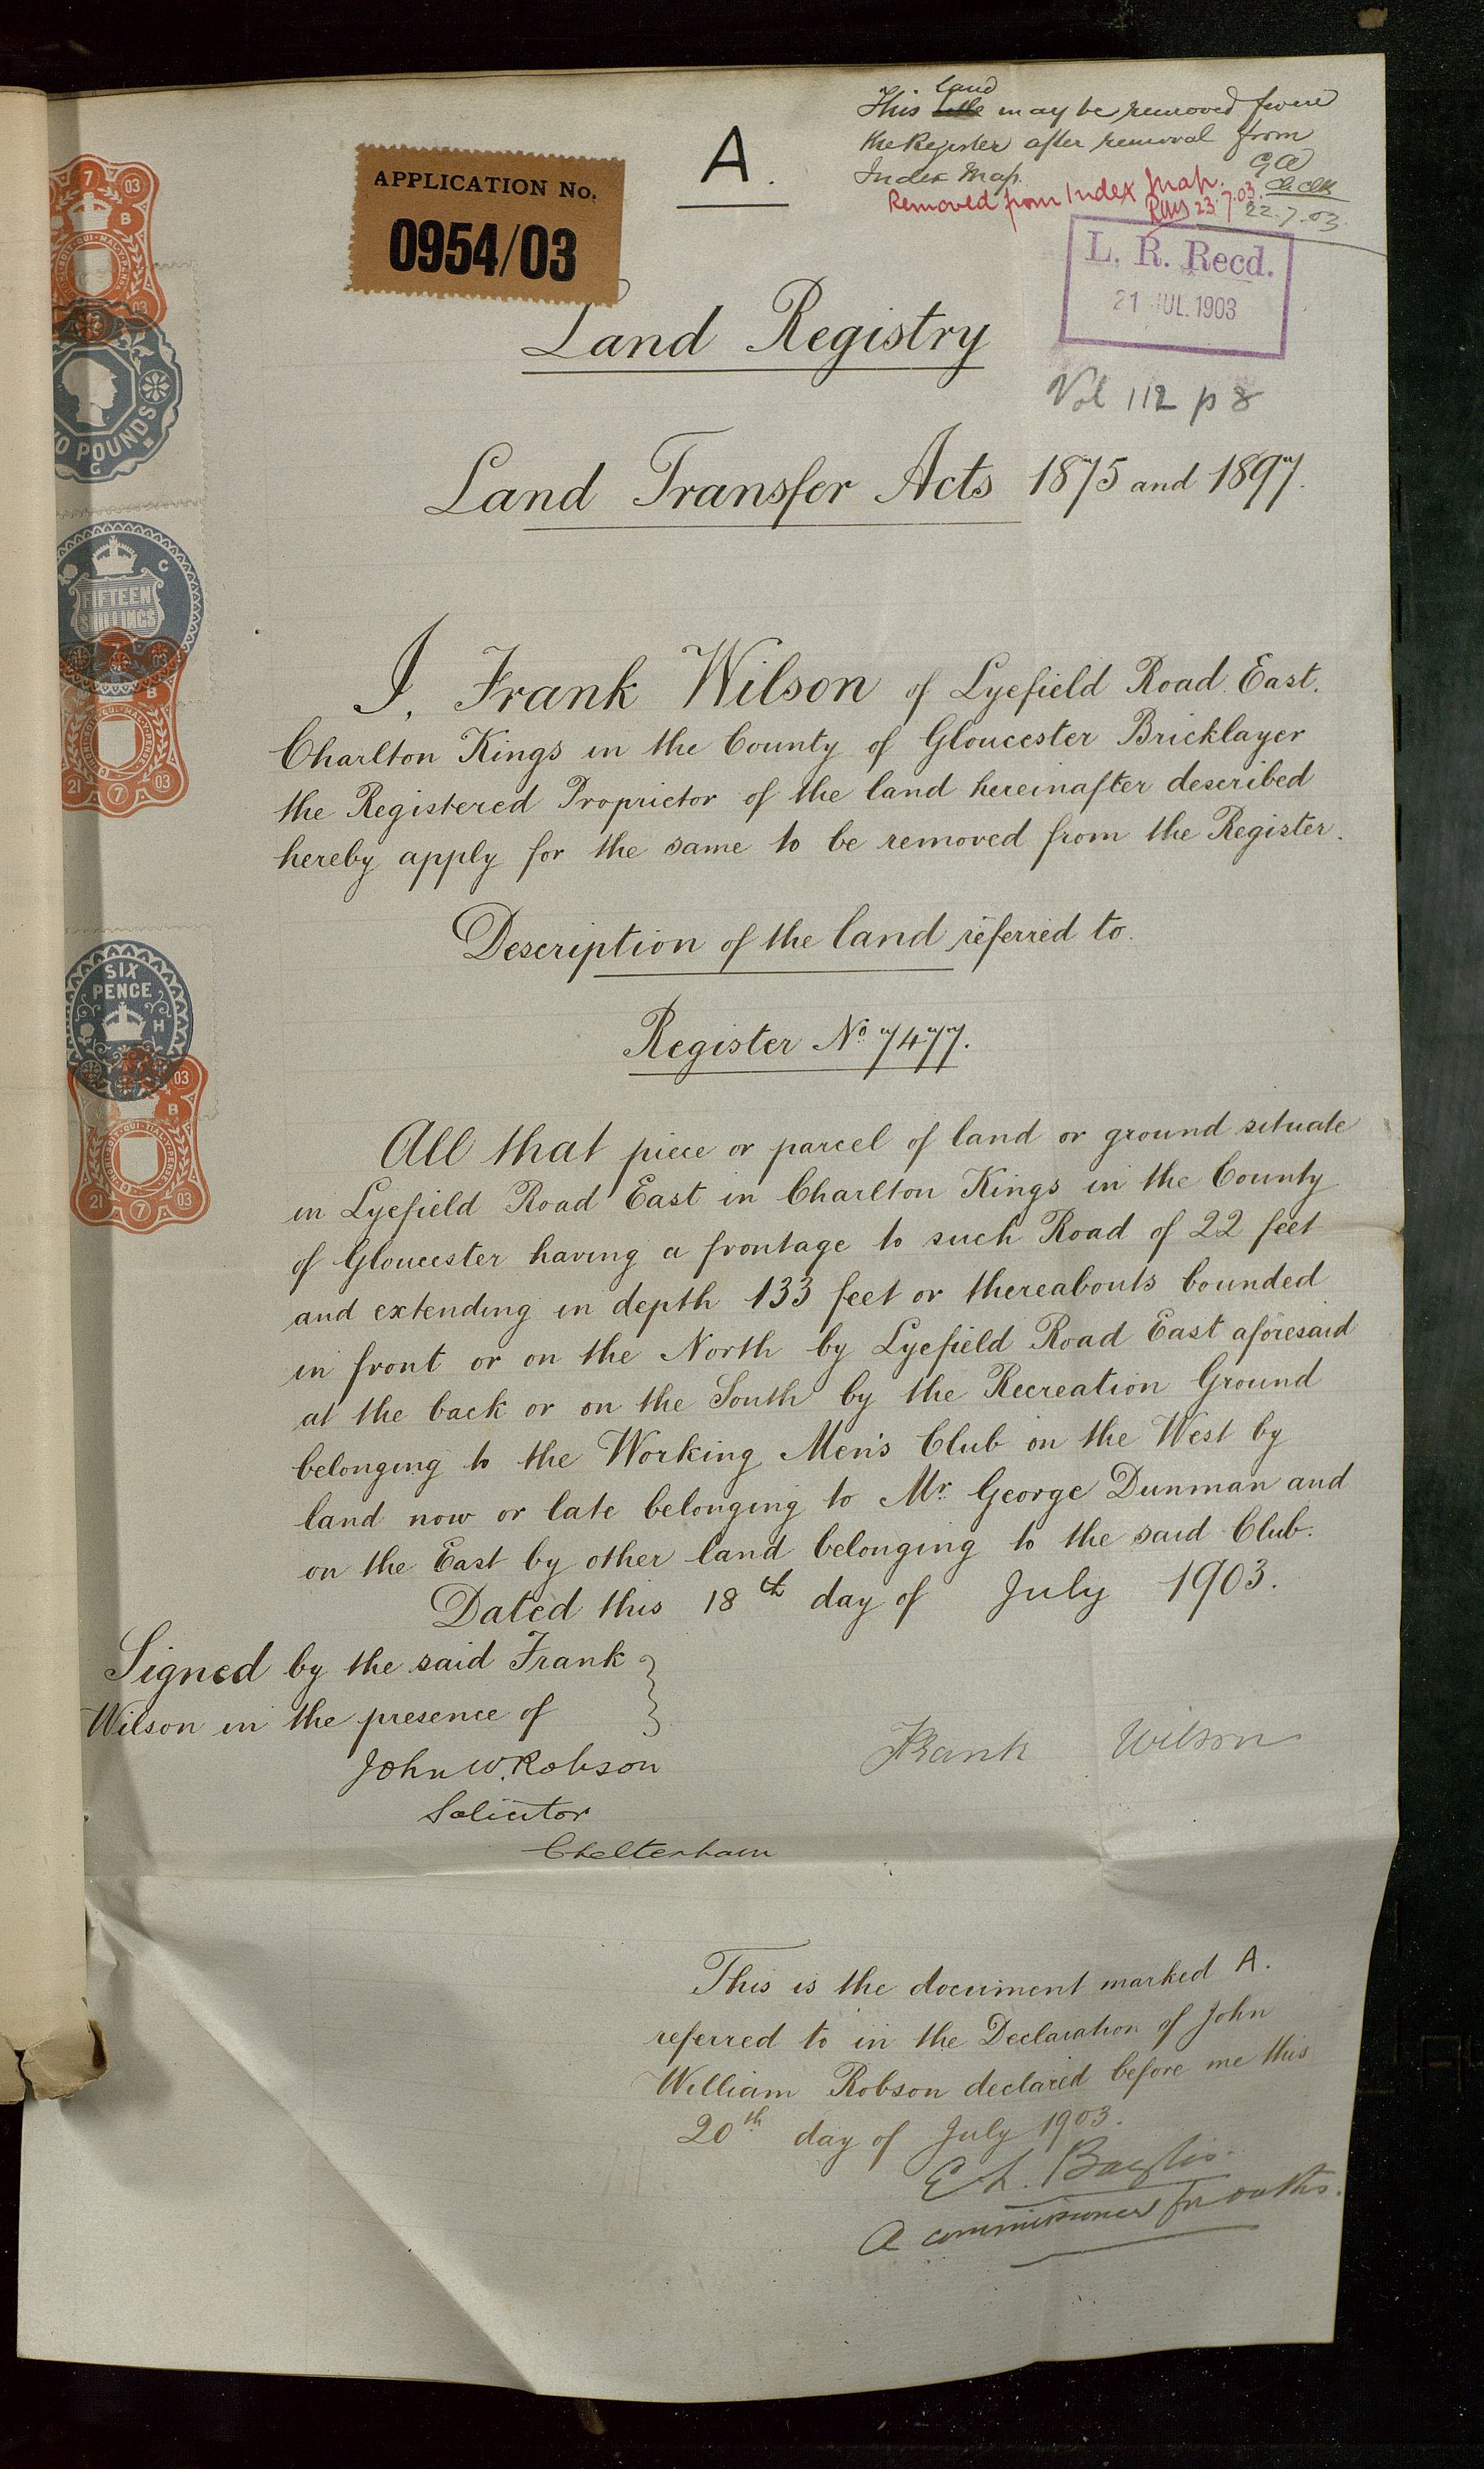 land
This title may be removed from
the Register after removal from
Index Map.
Ch. Clk
22.7.03.
Removed from Index Map.
23.7.03.
A.
APPLICATION No.
0954/03
L. R. Recd.
21 JUL. 1903
Land Registry
Vol 112 p 8
Land Transfer Acts 1875 and 1897.
I, Frank Wilson of Lyefield Road East.
Charlton Kings in the County of Gloucester Bricklayer
the Registered Proprietor of the land hereinafter described
hereby apply for the same to be removed from the Register.
Description of the land referred to.
Register No. 7477.
All that piece or parcel of land or ground situate
in Lyefield Road East in Charlton Kings in the County
of Gloucester having a frontage to such Road of 22 feet
and extending in depth 133 feet or thereabouts bounded
in front or on the North by Lyefield Road East aforesaid
at the back or on the South by the Recreation Ground
belonging to the Working Men's Club on the West by
land now or late belonging to Mr. George Dunman and
on the East by other land belonging to the said Club.
Dated this 18th day of July 1903.
Signed by the said Frank
Wilson in the presence of
John W. Robson
Solicitor
Cheltenham
Frank Wilson
This is the document marked A.
referred to in the Declaration of John
William Robson declared before me this
20th day of July 1903.
E. L. Baylis.
A commissioner for oaths.
7 03
B
03
O POUNDS
G
C
FIFTEEN
SHILLINGS
7 03
B
HONI·SOIT·QUI·MAL·Y·PENSE
21 7 03
SIX
PENCE
H
03
B
HONI·SOIT·QUI·MAL·Y·PENSE
21 7 03